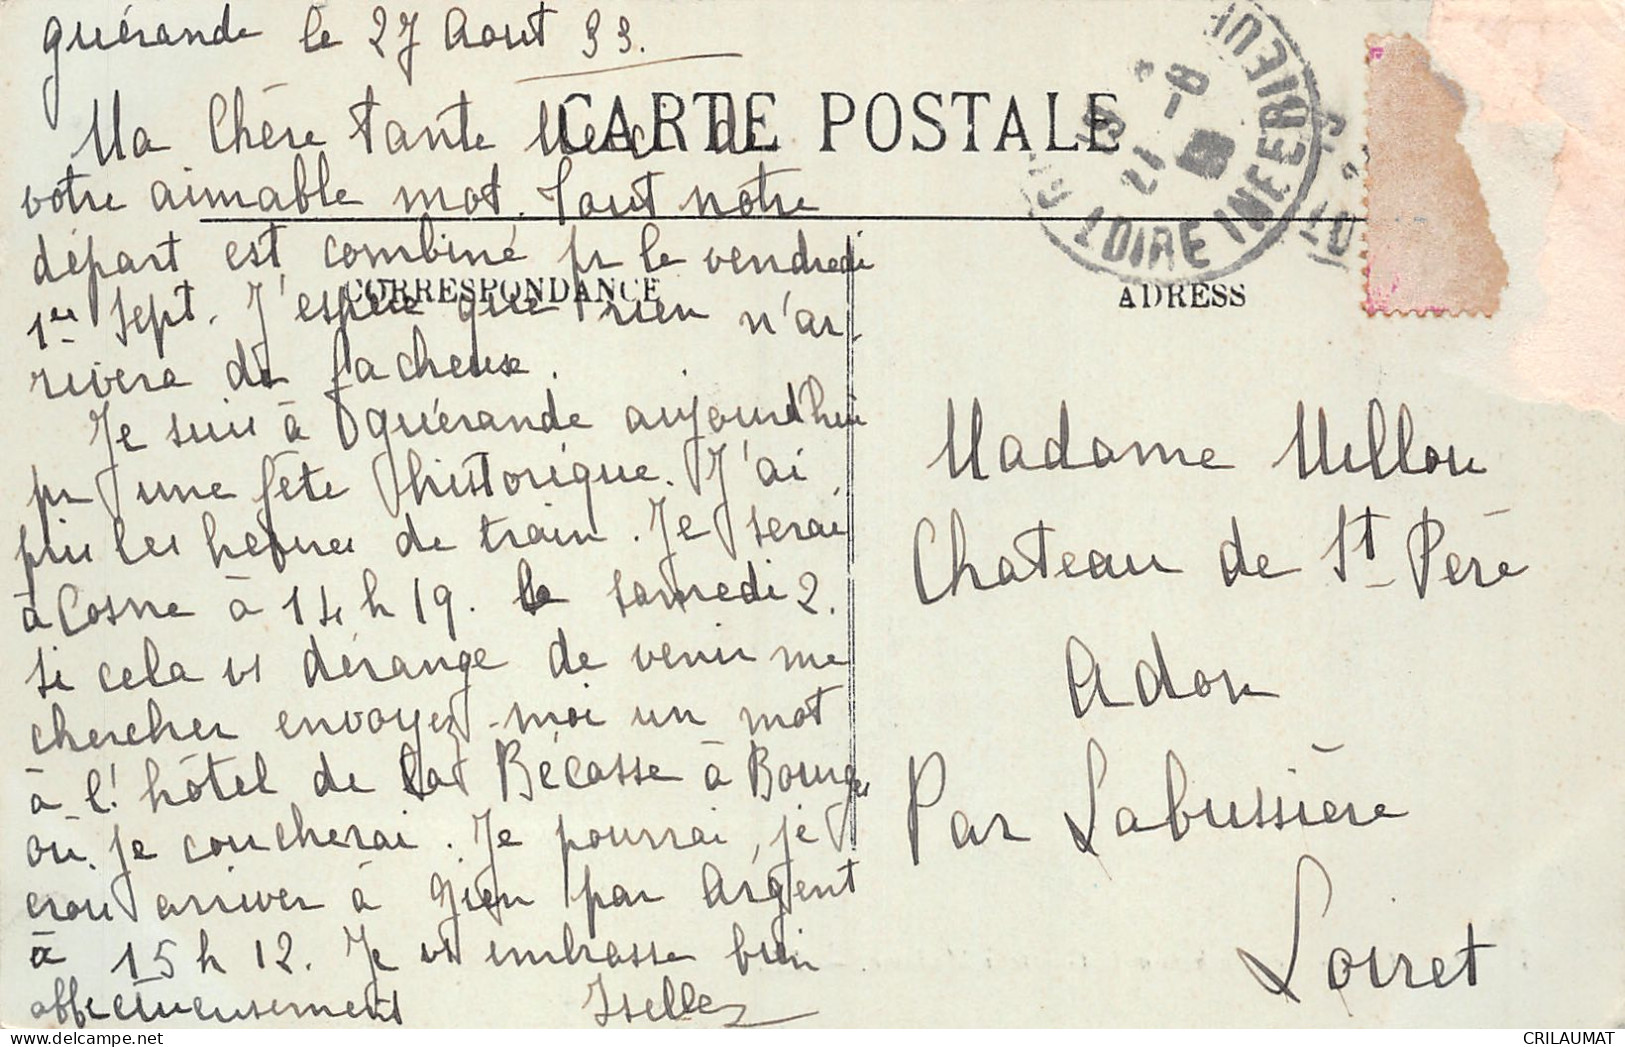 Guérande le 27 Aout 33.
CARTE POSTALE
Ma Chère tante Merci de
votre aimable mot. Tout notre
départ est combiné pr le vendredi
CORRESPONDANCE
1er Sept. J'espère que rien n'ar-
rivera de facheux.
Je suis à Guérande aujourd'hui
pr une fête historique. J'ai
pris les heures de train. Je serai
à Cosne à 14h19. le samedi 2.
Si cela vs dérange de venir me
chercher envoyez-moi un mot
à l'hôtel de la Bécasse à Bourges
où je coucherai. Je pourrai, je
crois arriver à Gien par Argent
à 15h12. Je vs embrasse bien
affectueusement
ADRESS
Madame Millou
Chateau de St-Père
Adon
Par Labussière
Loiret
LOIRE INFERIEUR
21 -8
CRILAUMAT